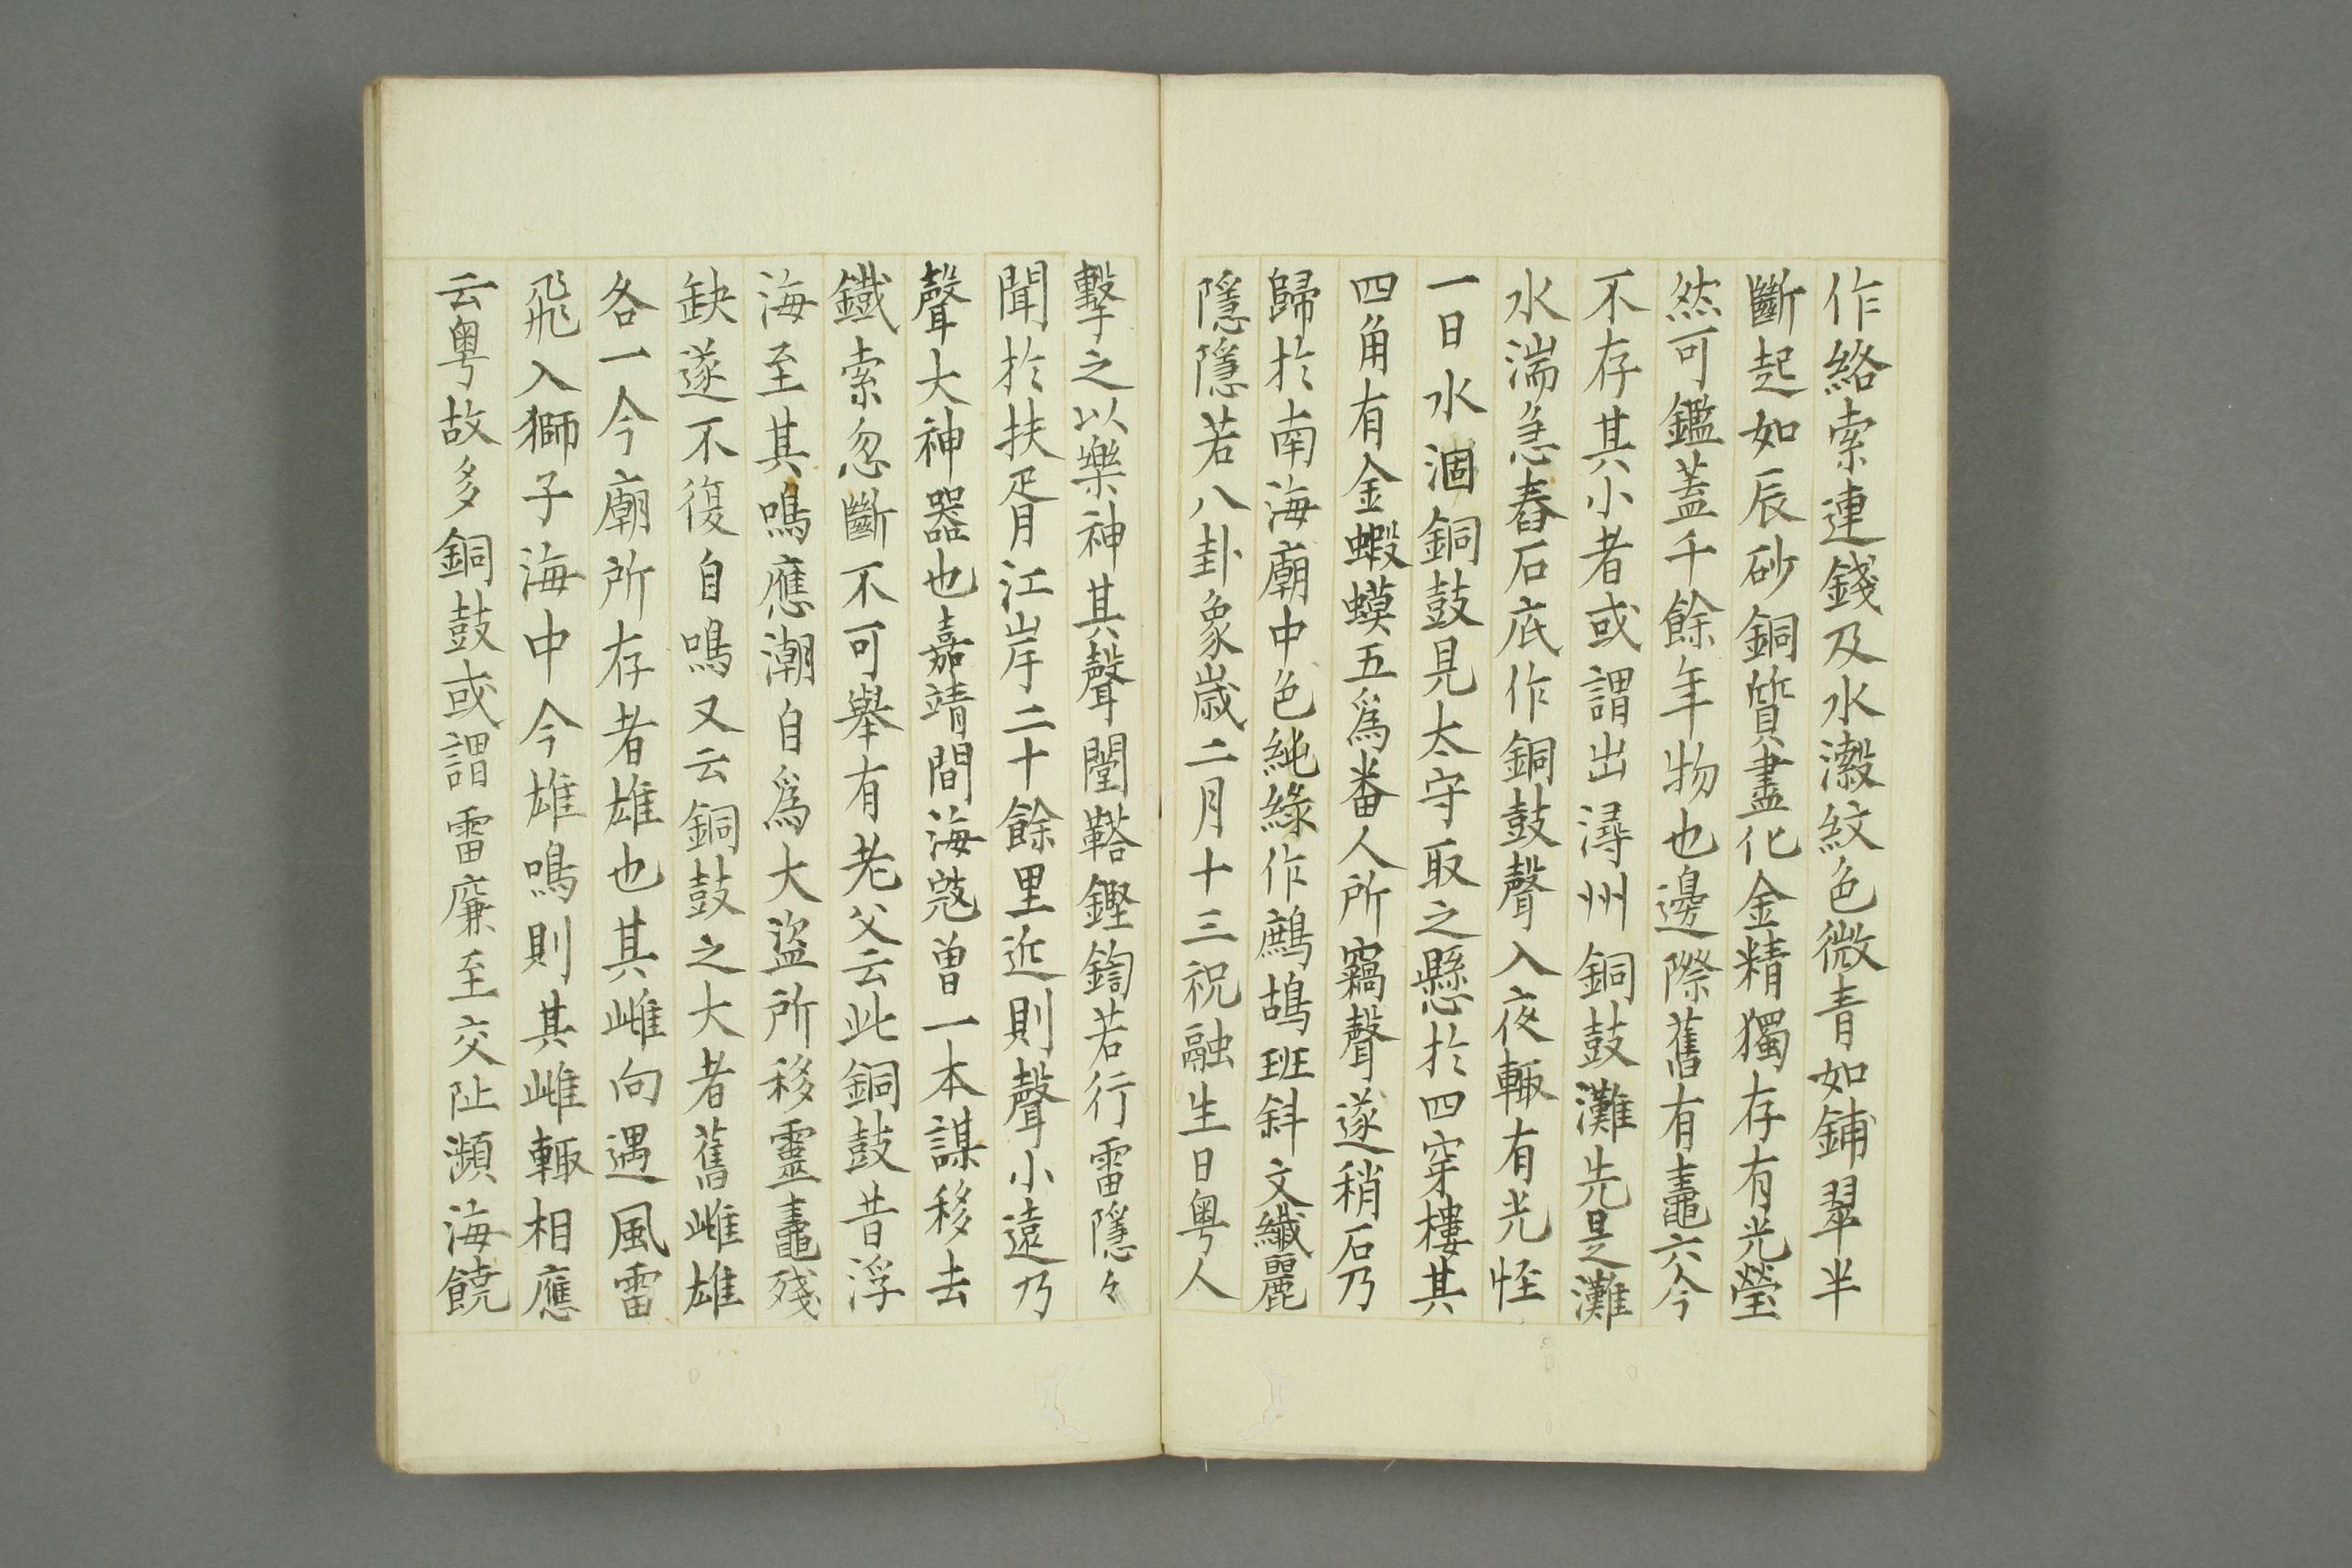 作絡索連錢及水瀔紋色微青如鋪翠半
斷起如辰砂銅質盡化金精獨存有光瑩
然可鑑蓋千餘年物也邊際舊有鼃六今
不存其小者或謂出潯州銅鼓灘先是灘
水湍急舂石底作銅鼓聲入夜輙有光怪
一日水涸銅鼓見太守取之懸於四穿樓其
四角有金蝦蟆五爲番人所竊聲遂稍石乃
歸於南海廟中色純綠作鷓鴣班斜文纖麗
隱隱若八卦象歲二月十三祝融生日粵人
擊之以樂神其聲闛鞳鏗鍧若行雷隱々
聞於扶胥江岸二十餘里近則聲小遠乃
聲大神器也嘉靖間海寇曽一本謀移去
鐵索忽斷不可舉有老父云此銅鼓昔浮
海至其鳴應潮自爲大盜所移靈鼃殘
缺遂不復自鳴又云銅鼓之大者舊雌雄
各一今廟所存者雄也其雌向遇風雷
飛入獅子海中今雄鳴則其雌輙相應
云粵故多銅鼓或謂雷廉至交阯瀕海饒